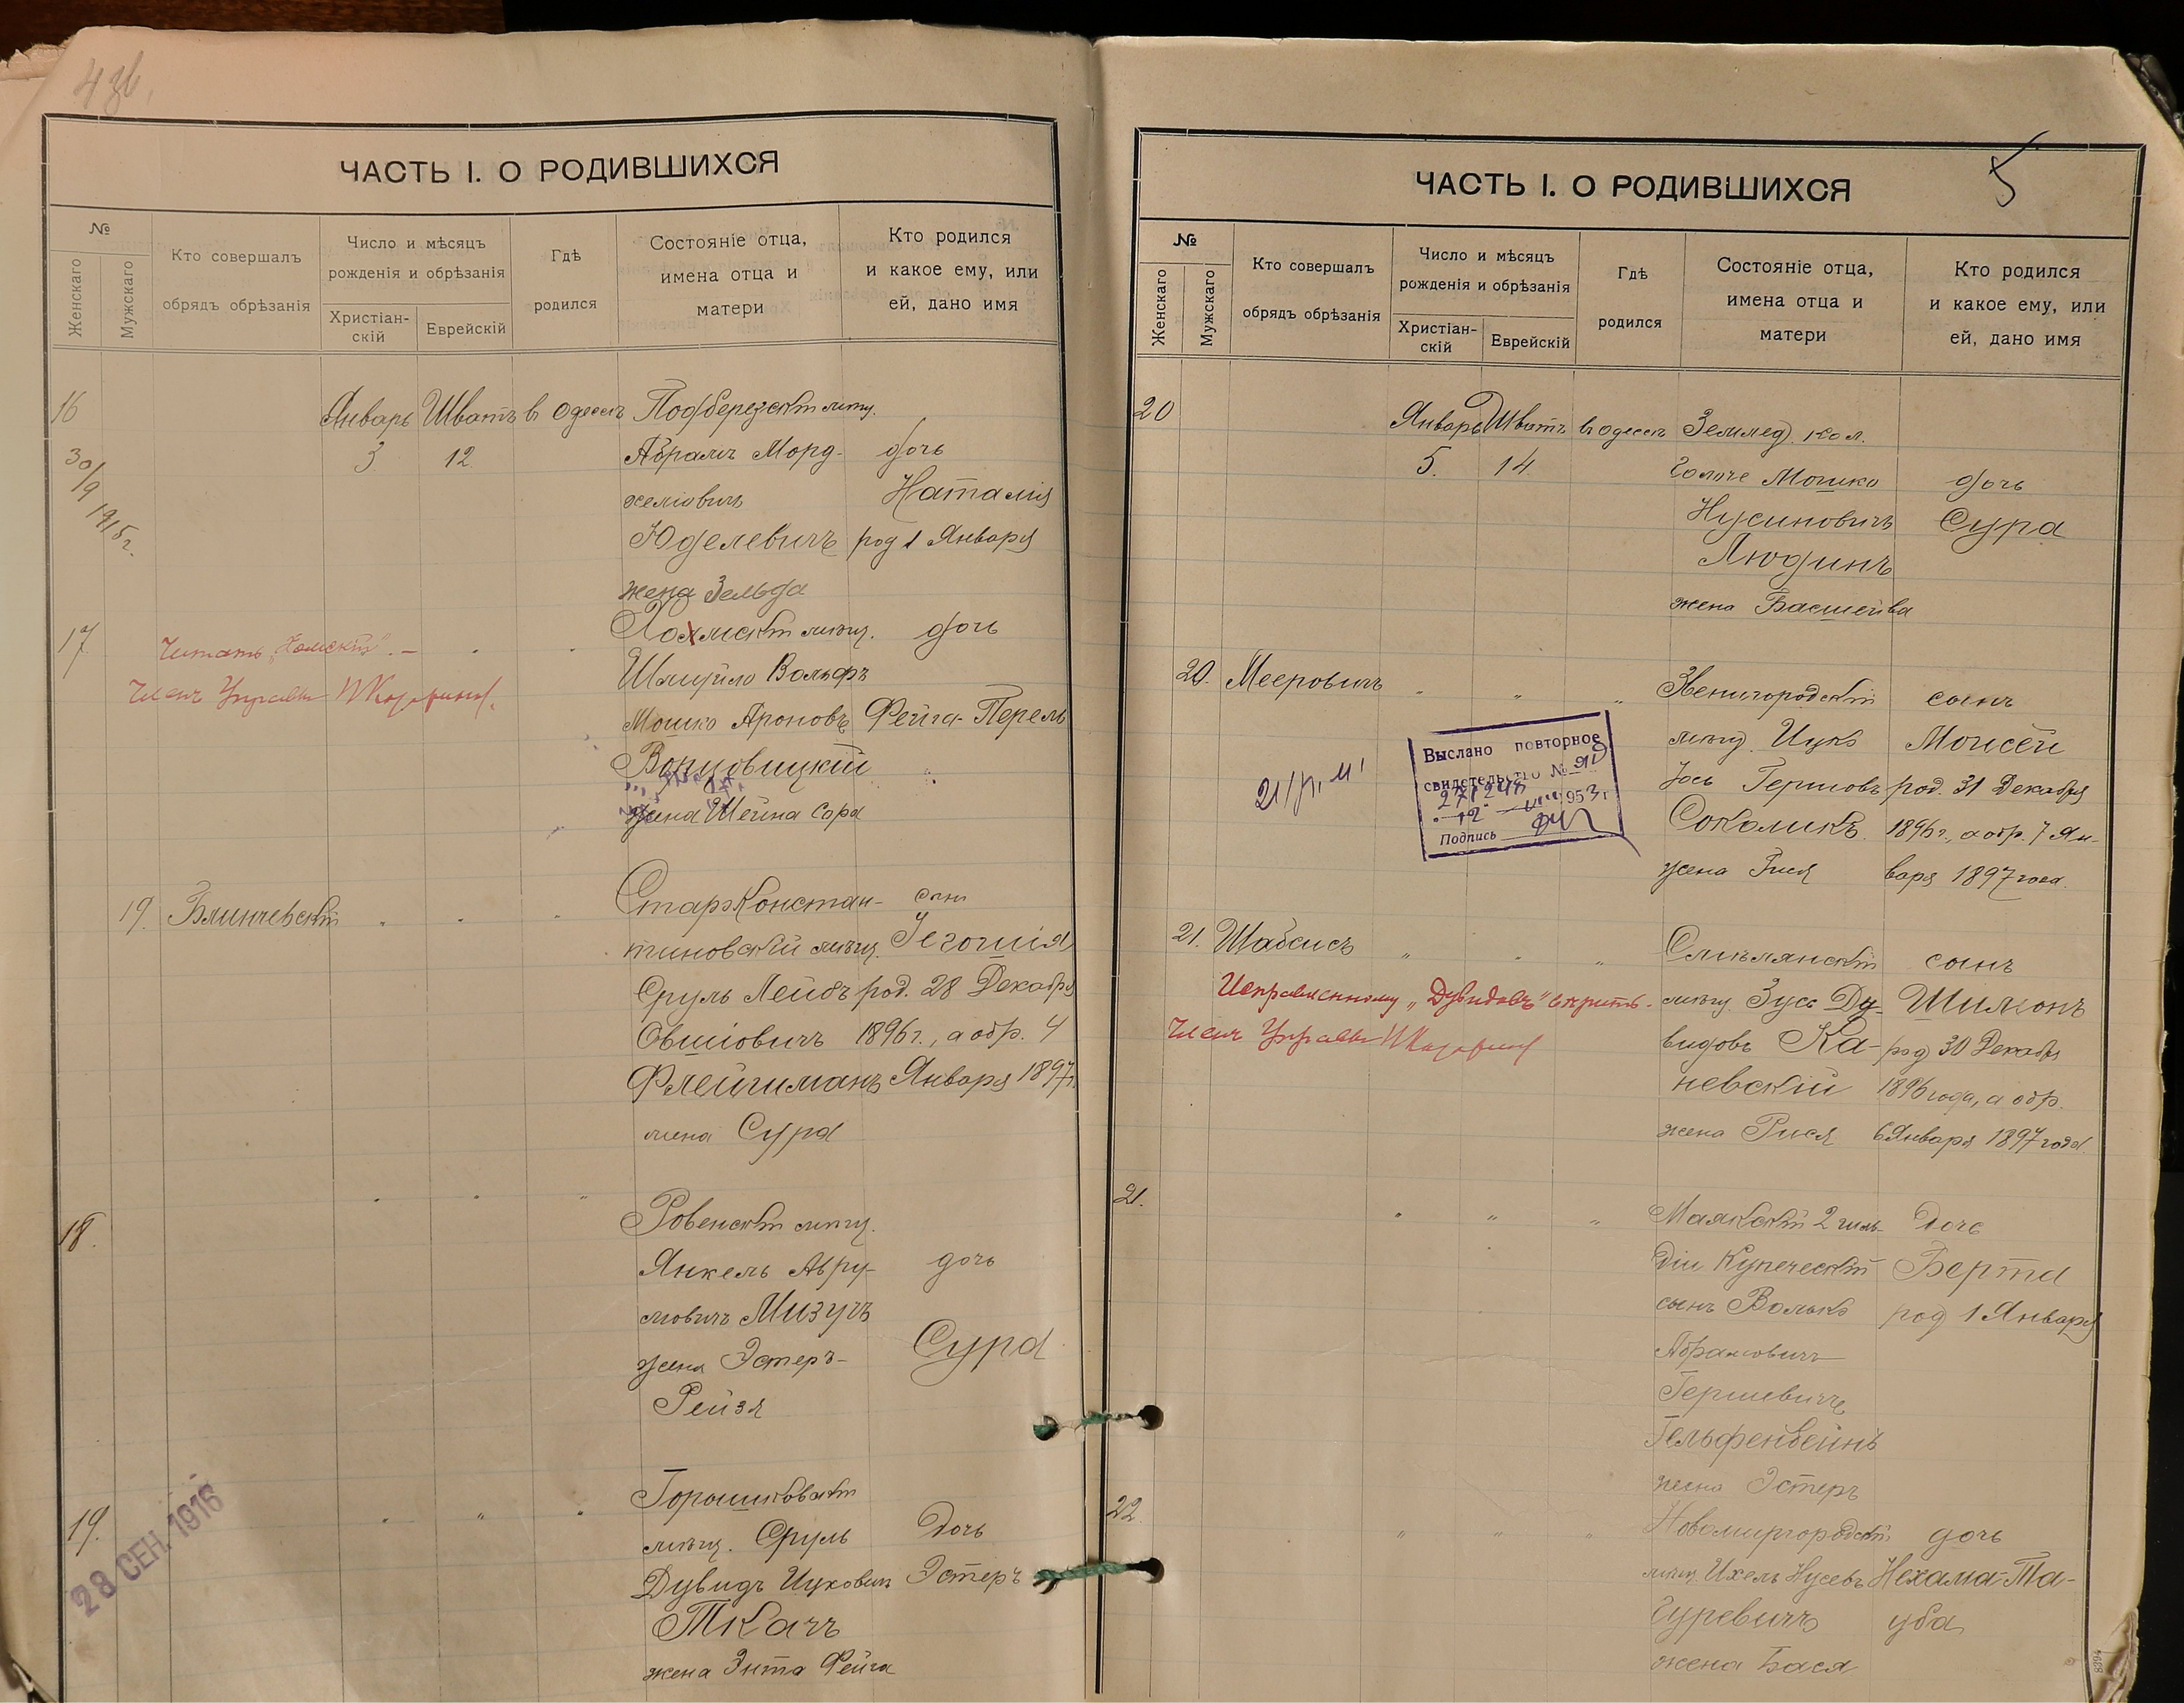 4 зв.
ЧАСТЬ I. О РОДИВШИХСЯ
№
Женскаго
Мужскаго
Кто совершалъ
обрядъ обрѣзанія
Число и мѣсяцъ
рожденія и обрѣзанія
Христіан-
скій
Еврейскій
Гдѣ
родился
Состояніе отца,
имена отца и
матери
Кто родился
и какое ему, или
ей, дано имя
16
30/9 1915 г.
Январь Шватъ в Одессѣ
3 12.
Подберезскій мѣщ.
Абрамъ Морд-
желіовичъ
Юделевичъ
жена Зельда
дочь
Наталія
род 1 Января
17
Читать „Хомскій". —
Членъ Управы
Хохмскій мѣщ.
Шмуйло Вольфъ
Мошко Ароновъ
жена Шейна Сора
дочь
Фейга-Перель
19. Блинчевскій
Старо Констан-
тиновскій мѣщ.
Сруль Лейбъ
Овшіовичъ
Флейшманъ
жена Сура
сынъ
Іегошія
род. 28 Декабря
1896 г., а обр. 4
Января 1897 г.
18.
Ровенскій мѣщ.
Янкель Авру-
мовичъ Мизучъ
жена Эстеръ-
Рейзя
дочь
Сура
19.
28 СЕН. 1916
Горошковскій
мѣщ. Сруль
Дувидъ Ицковичъ
Ткачъ
жена Энта Фейга
Дочь
Эстеръ
5
ЧАСТЬ I. О РОДИВШИХСЯ
№
Женскаго
Мужскаго
Кто совершалъ
обрядъ обрѣзанія
Число и мѣсяцъ
рожденія и обрѣзанія
Христіан-
скій
Еврейскій
Гдѣ
родился
Состояніе отца,
имена отца и
матери
Кто родился
и какое ему, или
ей, дано имя
20
Январь Шватъ в Одессѣ
5. 14
Землед. кол.
Мошко
Нусиновичъ
Людинъ
жена Басшейва
дочь
Сура
20. Мееровичъ
Выслано повторное
свидетельство №
1953 г
Подпись
Звенигородскій
мѣщ. Ицко
Іось Гершовъ
Соколикъ
жена Гися
сынъ
Моисей
род. 31 Декабря
1896 г., а обр. 7 Ян-
варя 1897 года.
21. Шабсисъ
Исправленному „Дувидовъ" вѣрить.
Членъ Управы
Смѣлянскій
мѣщ. Зусь Ду-
видовъ Ка-
невскій
жена Рися
сынъ
Шимонъ
род 30 Декабря
1896 года, а обр.
6 Января 1897 года.
21.
Маякскій 2 гиль-
діи Купеческій
сынъ Волько
Абрамовичъ
Гершевичъ
Гельфенбейнъ
жена Эстеръ
Дочь
Берта
род 1 Января
22
Новомиргородскій
мѣщ. Ихель Нусевъ
Гуревичъ
жена Бася
дочь
Нехама-Та-
уба
8394